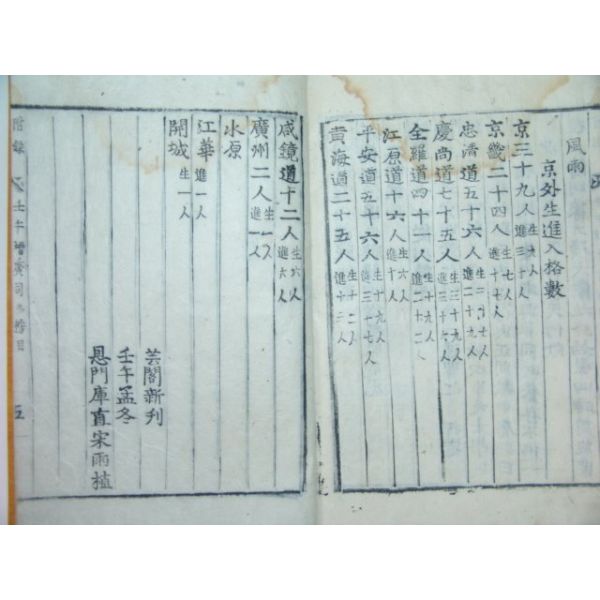 風雨
京外生進入格數
京三十九人 生九人 進三十人
京畿二十四人 生七人 進十七人
忠清道五十六人 生二十七人 進二十九人
慶尚道七十五人 生三十九人 進三十六人
全羅道四十一人 生十九人 進二十二人
江原道十六人 生六人 進十人
平安道五十六人 生十九人 進三十七人
黃海道二十五人 生十二人 進十三人
咸鏡道十二人 生六人 進六人
廣州二人 生一人 進一人
水原
江華 進一人
開城 生一人
芸閣新刊
壬午孟冬
恩門庫直宋雨植
附錄 壬午增廣司馬榜目 五